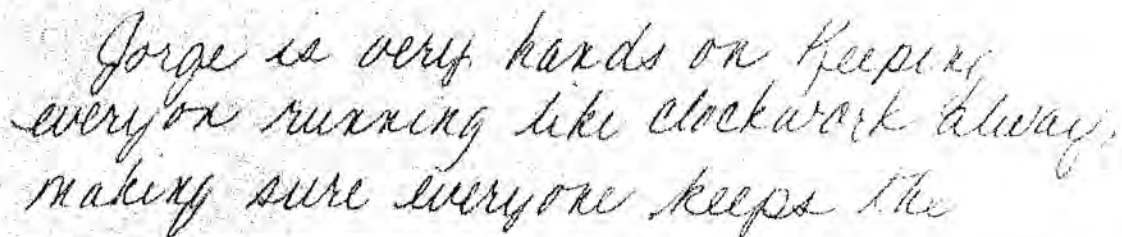 Jorge is very hands on Keeping
everyon running like clockwork always
making sure everyone keeps the